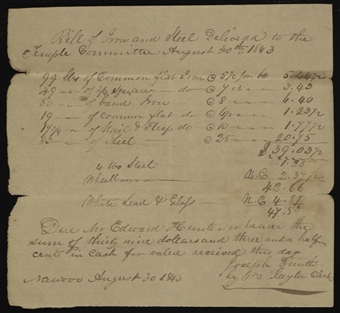 Bill of Iron and Steel Deliverd to the
Temple Committee August 30th 1843
99 lbs of Common flat Iron @ 5½ pr lb 5.44½
49 — of ¾ square — do @ 7 — 3.43
— of band Iron @ 8 — 4.40
19 — of common flat do @ 6½ — 1.23½
17¾ — of do @ 10 — 1.77½
— of Steel — @ 25 — 20.75
$39.03½
Steel
Wheelbarrow N.C. 2.37½
42.66
White Lead & Glass N.C
47.5
Due Mr Edward Hunter or bearer the
sum of thirty nine dollars and three and a half
cents in cash for value received this day
Joseph Smith
Nauvoo August 30 1843 by Wm Taylor Clerk